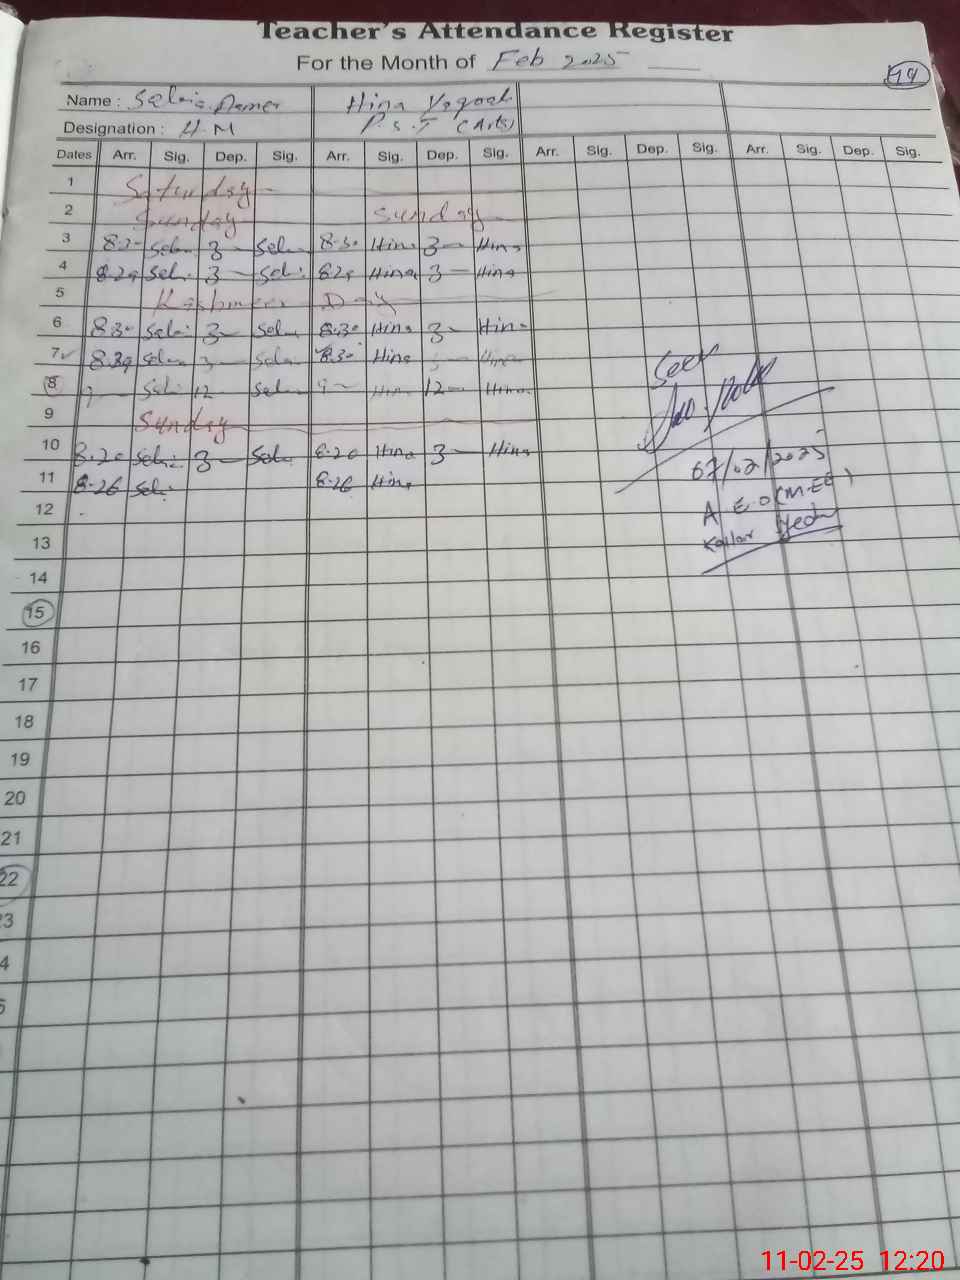 Teacher's Attendance Register
For the Month of Feb 2025
Name : Hina
Designation : H.M P.S.T (Arts)
Dates Arr. Sig. Dep. Sig. Arr. Sig. Dep. Sig. Arr. Sig. Dep. Sig. Arr. Sig. Dep. Sig.
1 Saturday
2 Sunday Sunday
3 8.30 3 8.30 Hina 3 Hina
4 8.29 3 8.29 Hina 3 Hina
5 Kashmir Day
6 8.30 3 8.30 Hina 3 Hina
7 3 8.30 Hina Hina
8 12 9 Hina 12 Hina
9 Sunday
10 8.20 3 8.20 Hina 3 Hina
11 8.26 8.26 Hina
12
13
14
15
16
17
18
19
20
21
22
23
4
5
Seen
07/02/2025
A E.O (M.EE)
11-02-25 12:20